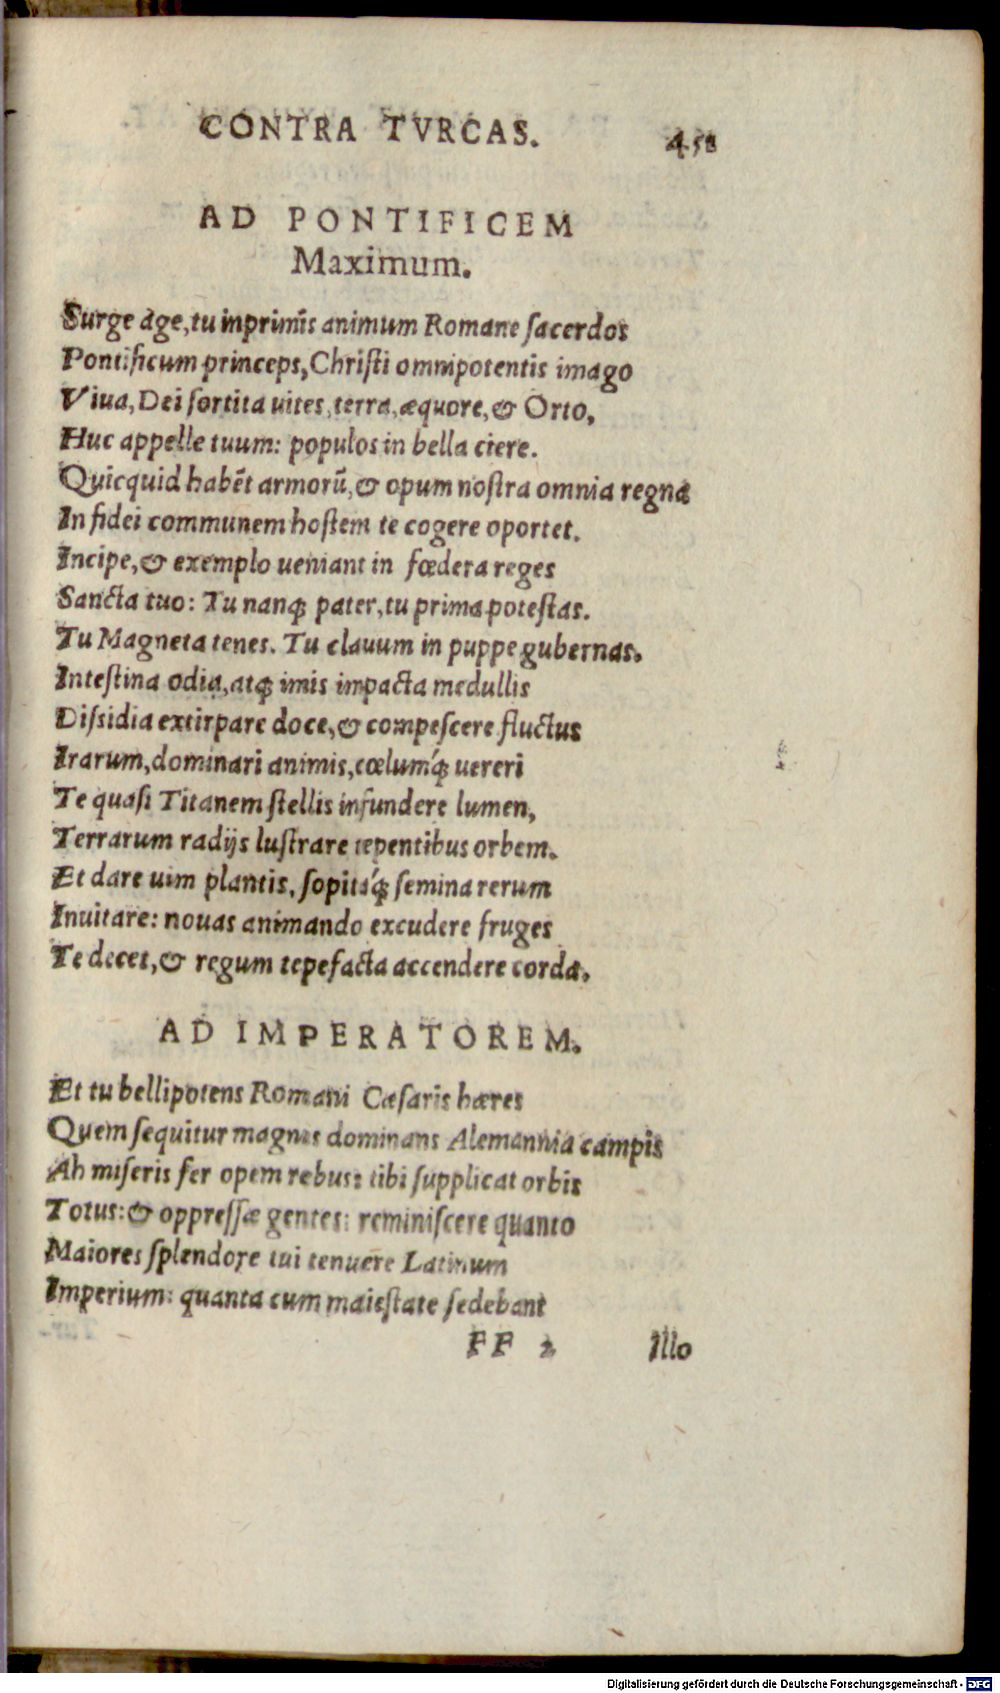 CONTRA TVRCAS. 458
AD PONTIFICEM
Maximum.
Surge age, tu inprimis animum Romane ſacerdos
Pontificum princeps, Chriſti omnipotentis imago
Viua, Dei ſortita uices, terra, æquore, & Orto,
Huc appelle tuum: populos in bella ciere.
Quicquid habēt armorū, & opum noſtra omnia regna
In fidei communem hoſtem te cogere oportet.
Incipe, & exemplo ueniant in fœdera reges
Sancta tuo: Tu nanq; pater, tu prima poteſtas.
Tu Magneta tenes. Tu clauum in puppe gubernas.
Inteſtina odia, atq; imis impacta medullis
Diſsidia extirpare doce, & compeſcere fluctus
Irarum, dominari animis, cœlumq́; uereri
Te quaſi Titanem ſtellis infundere lumen,
Terrarum radijs luſtrare tepentibus orbem.
Et dare uim plantis, ſopitaq́; ſemina rerum
Inuitare: nouas animando excudere fruges
Te decet, & regum tepefacta accendere corda.
AD IMPERATOREM.
Et tu bellipotens Romani Cæſaris hæres
Quem ſequitur magnis dominans Alemannia campis
Ah miſeris fer opem rebus: tibi ſupplicat orbis
Totus: & oppreſſæ gentes: reminiſcere quanto
Maiores ſplendore tui tenuere Latinum
Imperium: quanta cum maieſtate ſedebant
FF 2 Illo
Digitalisierung gefördert durch die Deutsche Forschungsgemeinschaft - DFG